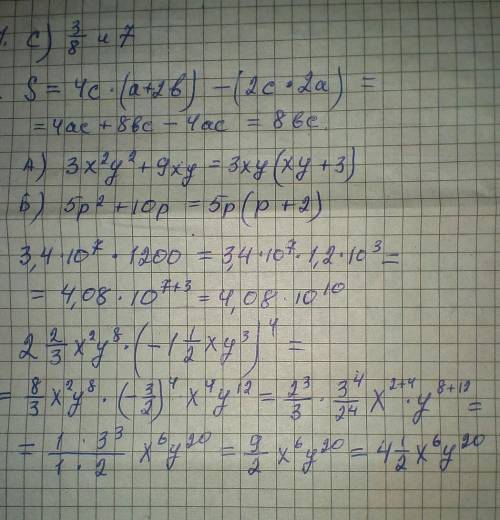 1. С) 3/8 и 7
S = 4c · (a+2b) - (2c · 2a) =
= 4ac + 8bc - 4ac = 8bc.
А) 3x²y² + 9xy = 3xy(xy+3)
Б) 5p² + 10p = 5p(p+2)
3,4·10⁷ · 1200 = 3,4·10⁷ · 1,2·10³ =
= 4,08 · 10⁷⁺³ = 4,08 · 10¹⁰
2 2/3 x²y⁸ · (-1 1/2 xy³)⁴ =
= 8/3 x²y⁸ · (-3/2)⁴ x⁴y¹² = 2³/3 · 3⁴/2⁴ x²⁺⁴ · y⁸⁺¹² =
= 1 · 3³/1 · 2 x⁶y²⁰ = 9/2 x⁶y²⁰ = 4 1/2 x⁶y²⁰